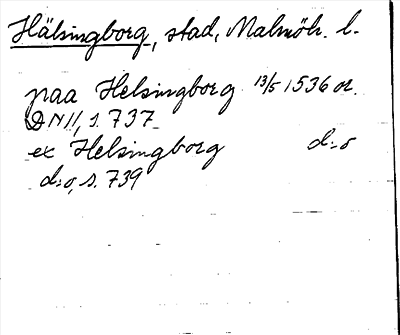 Hälsingborg, stad, Malmöh. l.
paa Helsingborg 13/5 1536 or.
DN II, s. 737
ex Helsingborg d:o
d:o, s. 739